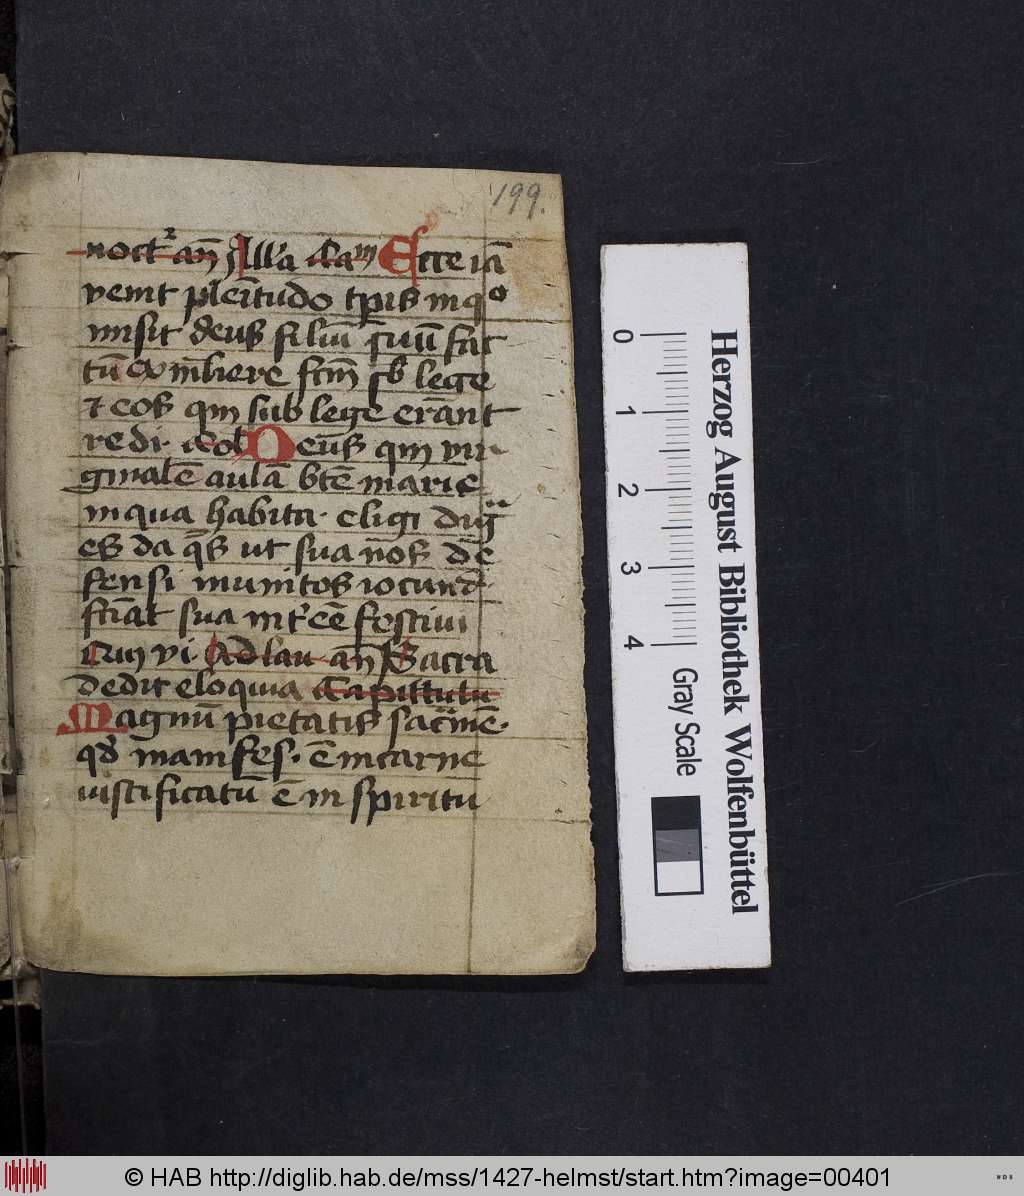 199.
noct² an̄ Illa Lam Ecce iā
venit plēitudo tp̄is in qº
misit deus filiū suū fac
tū ex mliere fctm̄ sb lege
⁊ eos qm̄ sub lege erant
redi. Col Deus qm̄ vir
ginalē aulā btē marie
in qua habita. eligi dig
es da q̄s ut sua nos de
fensi munitos iocund
faciat sua int̓ eē festiui
cum vi. Ad lau an̄ Sacra
dedit eloquia Capittulū
Magnū pietatis sacmē.
qd̓ manifes. ē in carne
iustificatū ē in spiritu
0 1 2 3 4
Gray Scale
Herzog August Bibliothek Wolfenbüttel
© HAB http://diglib.hab.de/mss/1427-helmst/start.htm?image=00401